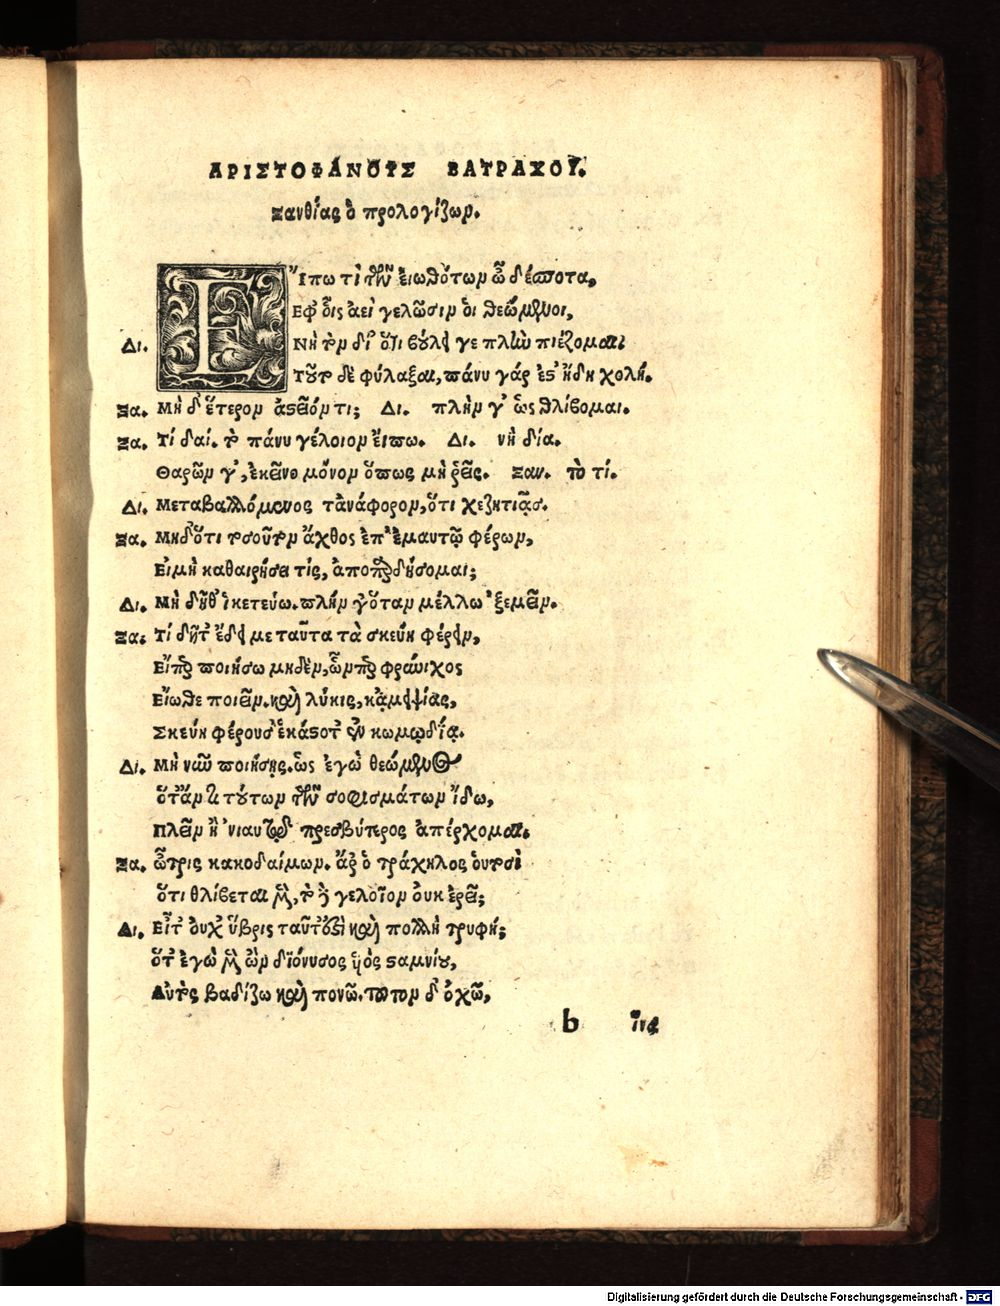 ΑΡΙΣΤΟΦΑΝΟΥΣ ΒΑΤΡΑΧΟΙ.
Ξανθίας ὁ προλογίζων.
Εἴπω τὶ τῶν εἰωθότων ὦ δέσποτα,
Εφ' οἷς ἀεὶ γελῶσιν ὁι θεώμενοι,
Δι. Νὴ τὸν δί' ὅτι βούλει γε πλὴν πιέζομαι
Τοῦτο δὲ φύλαξαι, πάνυ γάρ ἐς' ἤδη χολή.
Ξα. Μὴ δ' ἕτερον ἀστεῖόν τι; Δι. πλὴν γ' ὡς θλίβομαι.
Ξα. Τί δαί. τὸ πάνυ γέλοιον εἴπω. Δι. νὴ δία.
Θαρῶν γ', ἐκεῖνο μόνον ὅπως μὴ ρεῖς. Ξαν. τὸ τί.
Δι. Μεταβαλλόμενος τἀνάφορον, ὅτι χεζητιᾷς.
Ξα. Μηδ' ὅτι τοσοῦτον ἄχθος ἐπ' ἐμαυτῷ φέρων,
Ειμὴ καθαιρήσει τίς, ἀποπαρδήσομαι;
Δι. Μὴ δῆθ' ἱκετεύω. πλήν γ' ὅταν μέλλω 'ξεμεῖν.
Ξα. Τί δῆτ' ἔδει με ταῦτα τὰ σκεύη φέρειν,
Εἴπερ ποιήσω μηδὲν, ὧνπερ φρύνιχος
Εἴωθε ποιεῖν. καὶ λύκις, κἀμειψίας,
Σκεύη φέρουσ' ἑκάστοτ' ἐν κωμῳδίᾳ.
Δι. Μὴ νῦν ποιήσῃς. ὡς ἐγὼ θεώμενος
ὅτάν τι τούτων τῶν σοφισμάτων ἴδω,
Πλεῖν ἢ 'νιαυτῷ πρεσβύτερος ἀπέρχομαι.
Ξα. ὦ τρὶς κακοδαίμων. ἄρ' ὁ τράχηλος ὁυτοσὶ
ὅτι θλίβεται μὲν, τὸ δὲ γελοῖον ὀυκ ἐρεῖ;
Δι. Εἶτ' ὀυχ' ὕβρις ταῦτ' ἐςὶ καὶ πολλὴ τρυφή;
ὅτ' ἐγὼ μὲν ὢν διόνυσος ὑιὸς σταμνίου,
Αὐτὸς βαδίζω καὶ πονῶ. τοῦτον δ' ὀχῶ,
b ἵνα
Digitalisierung gefördert durch die Deutsche Forschungsgemeinschaft - DFG